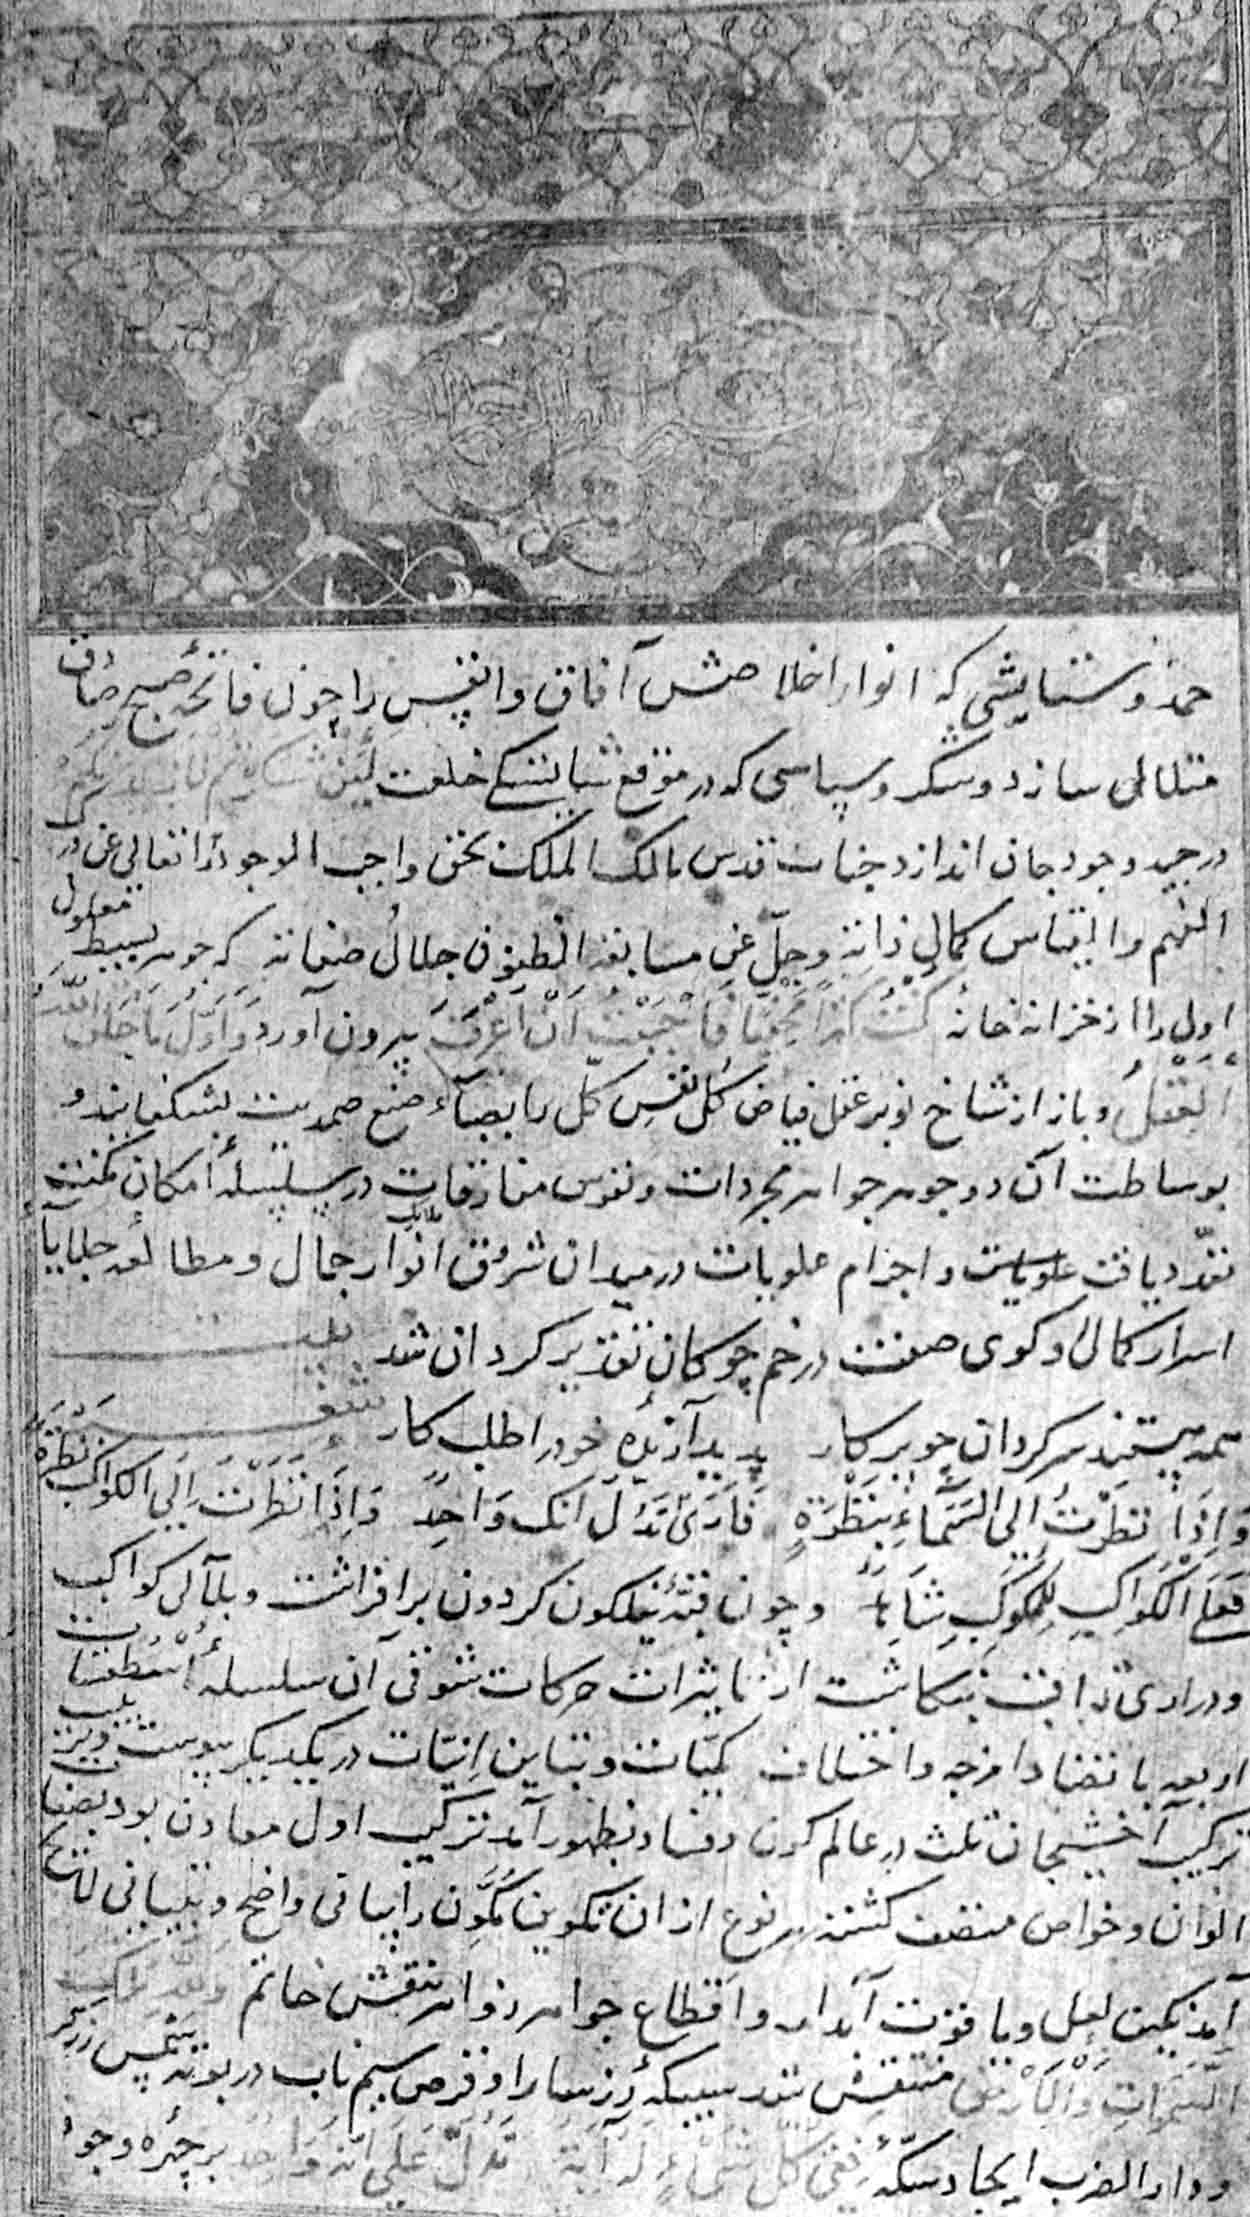 حمد و ستایشی که انوار اخلاصش آفاق و انفس را چون فاتحه صبح صادق
متلالی سازد و شکر و سپاسی که در موقع شایستگی خلعت لَئِن شَکَرتُم لَأَزیدَنَّکُم
در جید وجود جان اندازد جناب قدس مالک الملک بحق واجب الوجود را تعالی عن درک
الفهم والقیاس کمال ذاته وجلّ عن مسابقه الظنون جلال صفاته که جوهر بسیط معلول
اول را از خزانه خانه کُنتُ کَنزاً مَخفیّاً فَاَحبَبتُ اَن اُعرَف بیرون آورد وَاَوَّلُ ما خَلَقَ اللّهُ
العَقلُ و باز از شاخ نوبر عقل فیاض گل نفس کل را بصبآء صنع صمدیت بشکفانید و
بوساطت آن دو جوهر جواهر مجردات و نفوس مفارقات در سلسلهٔ امکان مکنت
تعدّد یافت و اجرام علویات در میدان شرق انوار جمال و مطالعه جلایاء
اسرار کمال او گوی صفت در خم چوکان تقدیر کردان شد بیت
همه هستند سرگردان چو پرکار پدید آرندهٔ خود را طلب کار شعر
وَاِذَا نَظَرْتَ اِلَی السَّمَاءِ بِنَظْرَةٍ فَاَرَی تَدُلُّ انک وَاحِدٌ وَاِذَا نَظَرْتَ اِلَی الکواکب نَظْرَةً
فَعَلَی الکَوَاکِبِ لِلْمُکَوکِبِ شَاهِدٌ و چون قبّهٔ نیلگون کردون برافراشت و بلآلی کواکب
و دراری ثواقب بنکاشت از تاثیرات حرکات شوقی آن سلسلهٔ اُسْطُقسات
اربعه با تضاد امزجه و اختلاف کمیّات و تباین اِنیّات در یکدیکر پیوست و بترتیب
ترکیب آخشیجان ثلث در عالم کون و فساد بظهور آمد ترکیب اول معادن بود بصفات
الوان و خواص متصف کشته هر نوع از ان تکوین مُکَوَّن را بیانی واضح و تبیانی لایح
آمد نکین لعل و یاقوت آبدار و اقطاع جواهر زواهر بنقش خاتم وَلِلّهِ مُلکُ
السَّمَواتِ وَالاَرْضِ منتقش شد سبیکهٔ زر سارا و قرص سیم ناب در بوته شمس زرکر
و دار الضرب ایجاد سکّهٔ فَفِی کُلِّ شَیءٍ لَهُ آیَة تَدُلُّ عَلَی اَنَّهُ وَاحِدٌ بر چهره وجود